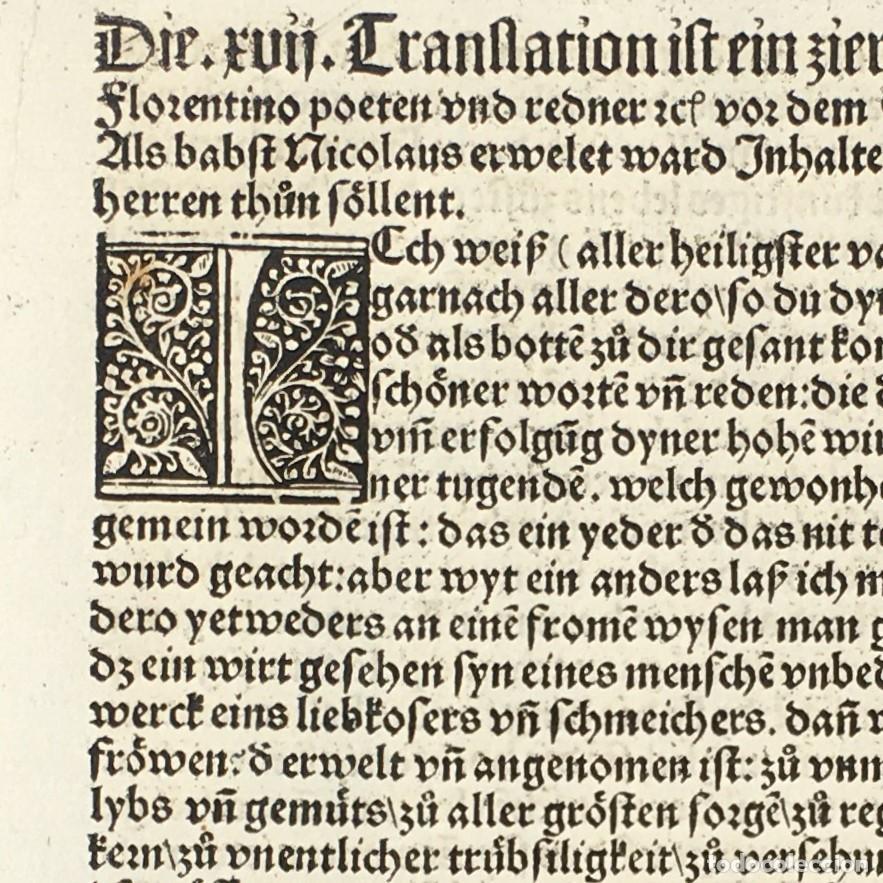 Die. xvij. Translation ist ein zier
Florentino poeten vnd redner ꝛcꝭ vor dem
Als babst Nicolaus erwelet ward Inhalte
herren thůn soͤllent.
ICch weiß ( aller heiligster va
garnach aller dero\so du dy
oď als bottē zů dir gesant kom
schoͤner wortē vñ reden: die d
vm̃ erfolgūg dyner hohē wir
ner tugendē. welch gewonhe
gemein wordē ist: das ein yeder ď das nit t
wurd geacht: aber wyt ein anders laß ich m
dero yetweders an einē fromē wysen man g
dz ein wirt gesehen syn eines menschē vnbed
werck eins liebkosers vñ schmeichers. dañ
froͤwen: ď erwelt vñ angenomen ist: zů vnm
lybs vñ gemuͤts\zů aller groͤsten sorgē\zů reg
kern\zů vnentlicher truͤbsiligkeit\zů versehun
todocoleccion